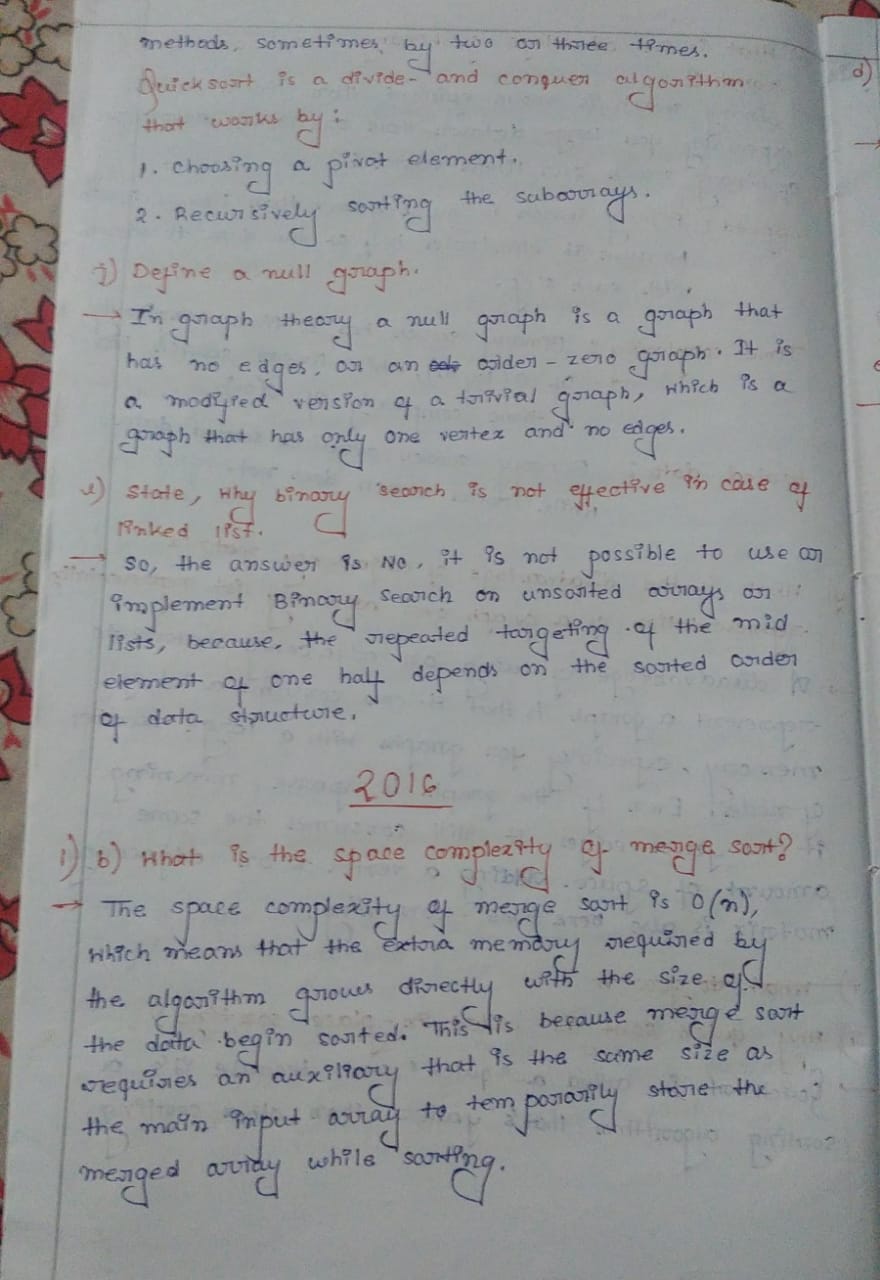 methods, sometimes by two or three times.
Quick sort is a divide- and conquer algorithm
that works by:
1. choosing a pivot element.
2. Recursively sorting the subarrays.
j) Define a null graph.
→ In graph theory a null graph is a graph that
has no edges, or an order-zero graph. It is
a modified version of a trivial graph, which is a
graph that has only one vertex and no edges.
e) State, why binary search is not effective in case of
linked list.
→ So, the answer is No, it is not possible to use or
implement Binary search on unsorted arrays or
lists, because, the repeated targeting of the mid
element of one half depends on the sorted order
of data structure.
2016
1) b) What is the space complexity of merge sort?
→ The space complexity of merge sort is O(n),
which means that the extra memory required by
the algorithm grows directly with the size of
the data begin sorted. This is because merge sort
requires an auxiliary that is the same size as
the main input array to temporarily store the
merged array while sorting.
d)